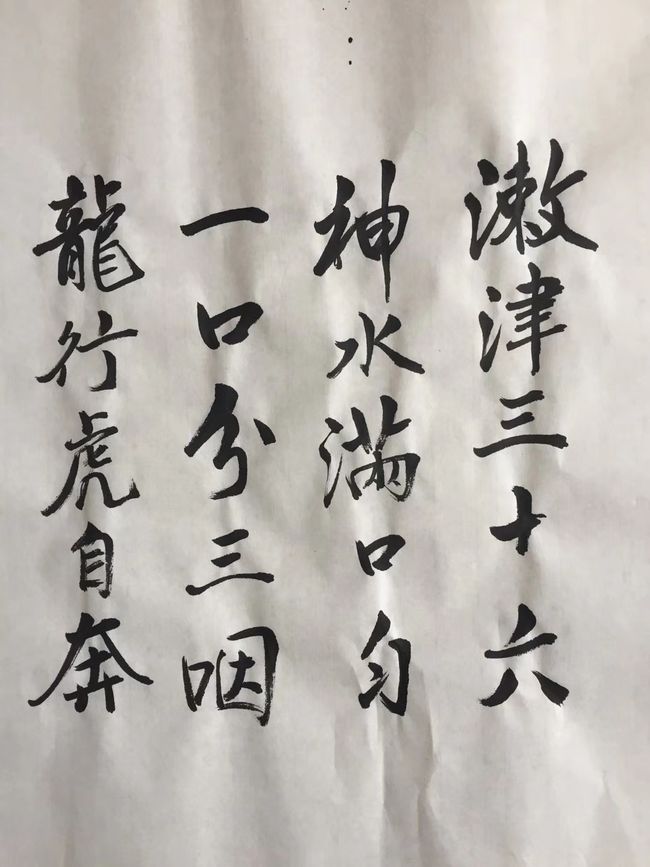 漱津三十六
神水滿口勻
一口分三咽
龍行虎自奔